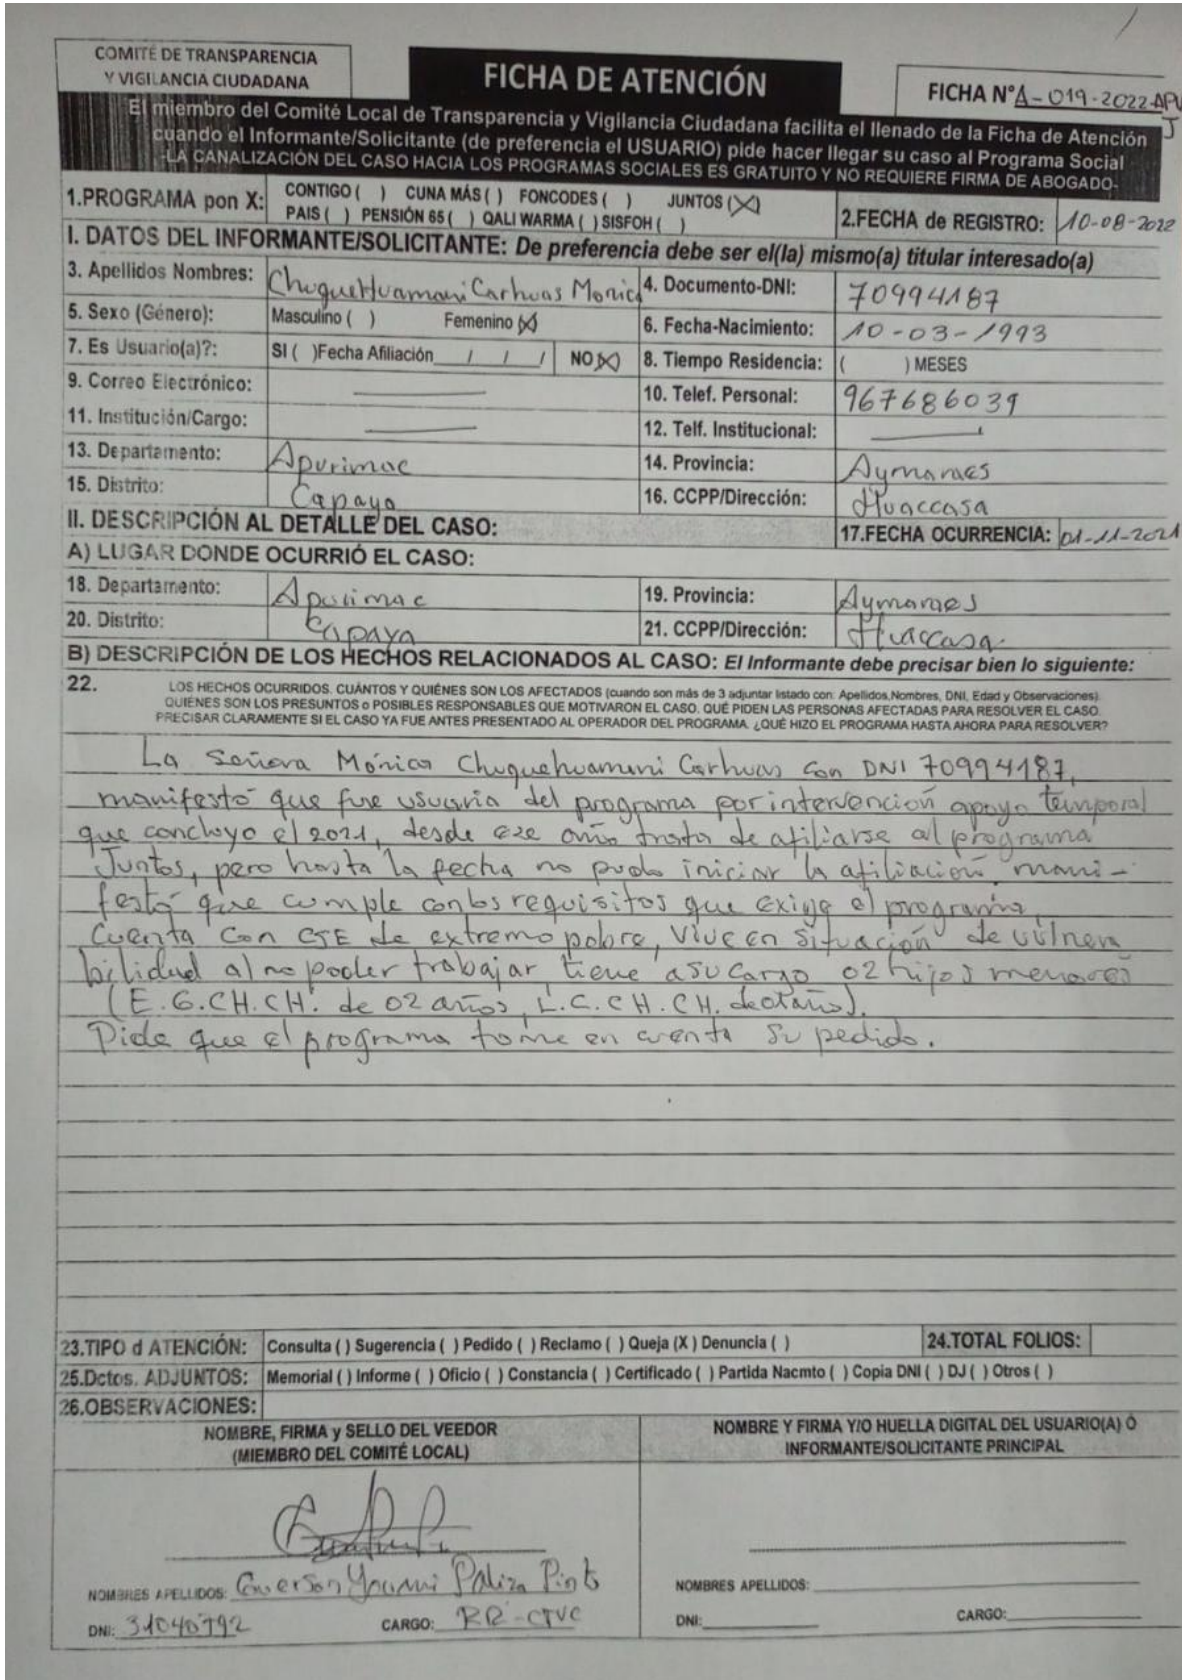 COMITÉ DE TRANSPARENCIA
Y VIGILANCIA CIUDADANA
FICHA DE ATENCIÓN
FICHA N° A-019-2022-APU
J
El miembro del Comité Local de Transparencia y Vigilancia Ciudadana facilita el llenado de la Ficha de Atención
cuando el Informante/Solicitante (de preferencia el USUARIO) pide hacer llegar su caso al Programa Social
-LA CANALIZACIÓN DEL CASO HACIA LOS PROGRAMAS SOCIALES ES GRATUITO Y NO REQUIERE FIRMA DE ABOGADO-
1.PROGRAMA pon X: CONTIGO ( ) CUNA MÁS ( ) FONCODES ( ) JUNTOS (X)
PAIS ( ) PENSIÓN 65 ( ) QALI WARMA ( ) SISFOH ( )
2.FECHA de REGISTRO: 10-08-2022
I. DATOS DEL INFORMANTE/SOLICITANTE: De preferencia debe ser el(la) mismo(a) titular interesado(a)
3. Apellidos Nombres: ChuqueHuamani Carhuas Monica 4. Documento-DNI: 70994187
5. Sexo (Género): Masculino ( ) Femenino (X) 6. Fecha-Nacimiento: 10-03-1993
7. Es Usuario(a)?: SI ( )Fecha Afiliación / / / NO (X) 8. Tiempo Residencia: ( ) MESES
9. Correo Electrónico: 10. Telef. Personal: 967686039
11. Institución/Cargo: 12. Telf. Institucional:
13. Departamento: Apurimac 14. Provincia: Aymaraes
15. Distrito: Capaya 16. CCPP/Dirección: Huaccasa
II. DESCRIPCIÓN AL DETALLE DEL CASO: 17.FECHA OCURRENCIA: 01-11-2021
A) LUGAR DONDE OCURRIÓ EL CASO:
18. Departamento: Apurimac 19. Provincia: Aymaraes
20. Distrito: Capaya 21. CCPP/Dirección: Huaccasa
B) DESCRIPCIÓN DE LOS HECHOS RELACIONADOS AL CASO: El Informante debe precisar bien lo siguiente:
22. LOS HECHOS OCURRIDOS. CUÁNTOS Y QUIÉNES SON LOS AFECTADOS (cuando son más de 3 adjuntar listado con: Apellidos,Nombres, DNI, Edad y Observaciones).
QUIENES SON LOS PRESUNTOS o POSIBLES RESPONSABLES QUE MOTIVARON EL CASO. QUÉ PIDEN LAS PERSONAS AFECTADAS PARA RESOLVER EL CASO.
PRECISAR CLARAMENTE SI EL CASO YA FUE ANTES PRESENTADO AL OPERADOR DEL PROGRAMA. ¿QUÉ HIZO EL PROGRAMA HASTA AHORA PARA RESOLVER?
La Señora Mónica Chuquehuamani Carhuas con DNI 70994187,
manifestó que fue usuaria del programa por intervención apoyo temporal
que concluyo el 2021, desde ese año trata de afiliarse al programa
Juntos, pero hasta la fecha no pudo iniciar la afiliación, mani-
festó que cumple con los requisitos que exige el programa,
Cuenta con CSE de extremo pobre, Vive en Situación de vulnera
bilidad al no poder trabajar tiene a su cargo 02 hijos menores
(E.G.CH.CH. de 02 años, L.C.CH.CH. de 01 año).
Pide que el programa tome en cuenta su pedido.
23.TIPO d ATENCIÓN: Consulta ( ) Sugerencia ( ) Pedido ( ) Reclamo ( ) Queja (X ) Denuncia ( ) 24.TOTAL FOLIOS:
25.Dctos. ADJUNTOS: Memorial ( ) Informe ( ) Oficio ( ) Constancia ( ) Certificado ( ) Partida Nacmto ( ) Copia DNI ( ) DJ ( ) Otros ( )
26.OBSERVACIONES:
NOMBRE, FIRMA y SELLO DEL VEEDOR
(MIEMBRO DEL COMITÉ LOCAL)
NOMBRE Y FIRMA Y/O HUELLA DIGITAL DEL USUARIO(A) Ó
INFORMANTE/SOLICITANTE PRINCIPAL
NOMBRES APELLIDOS: Paliza Pinto
DNI: 31040992 CARGO: RR-CTVC
NOMBRES APELLIDOS:
DNI: CARGO: